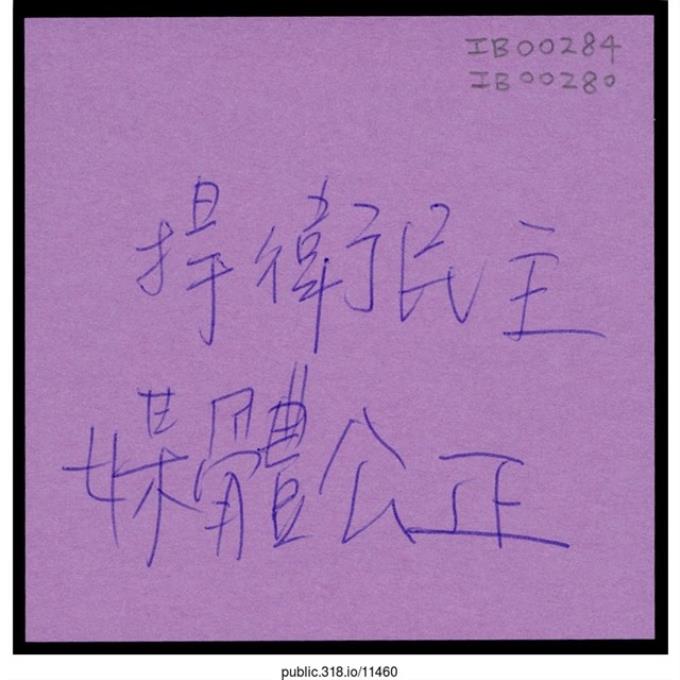 IB00284
IB00280
捍衛民主
媒體公正
public.318.io/11460